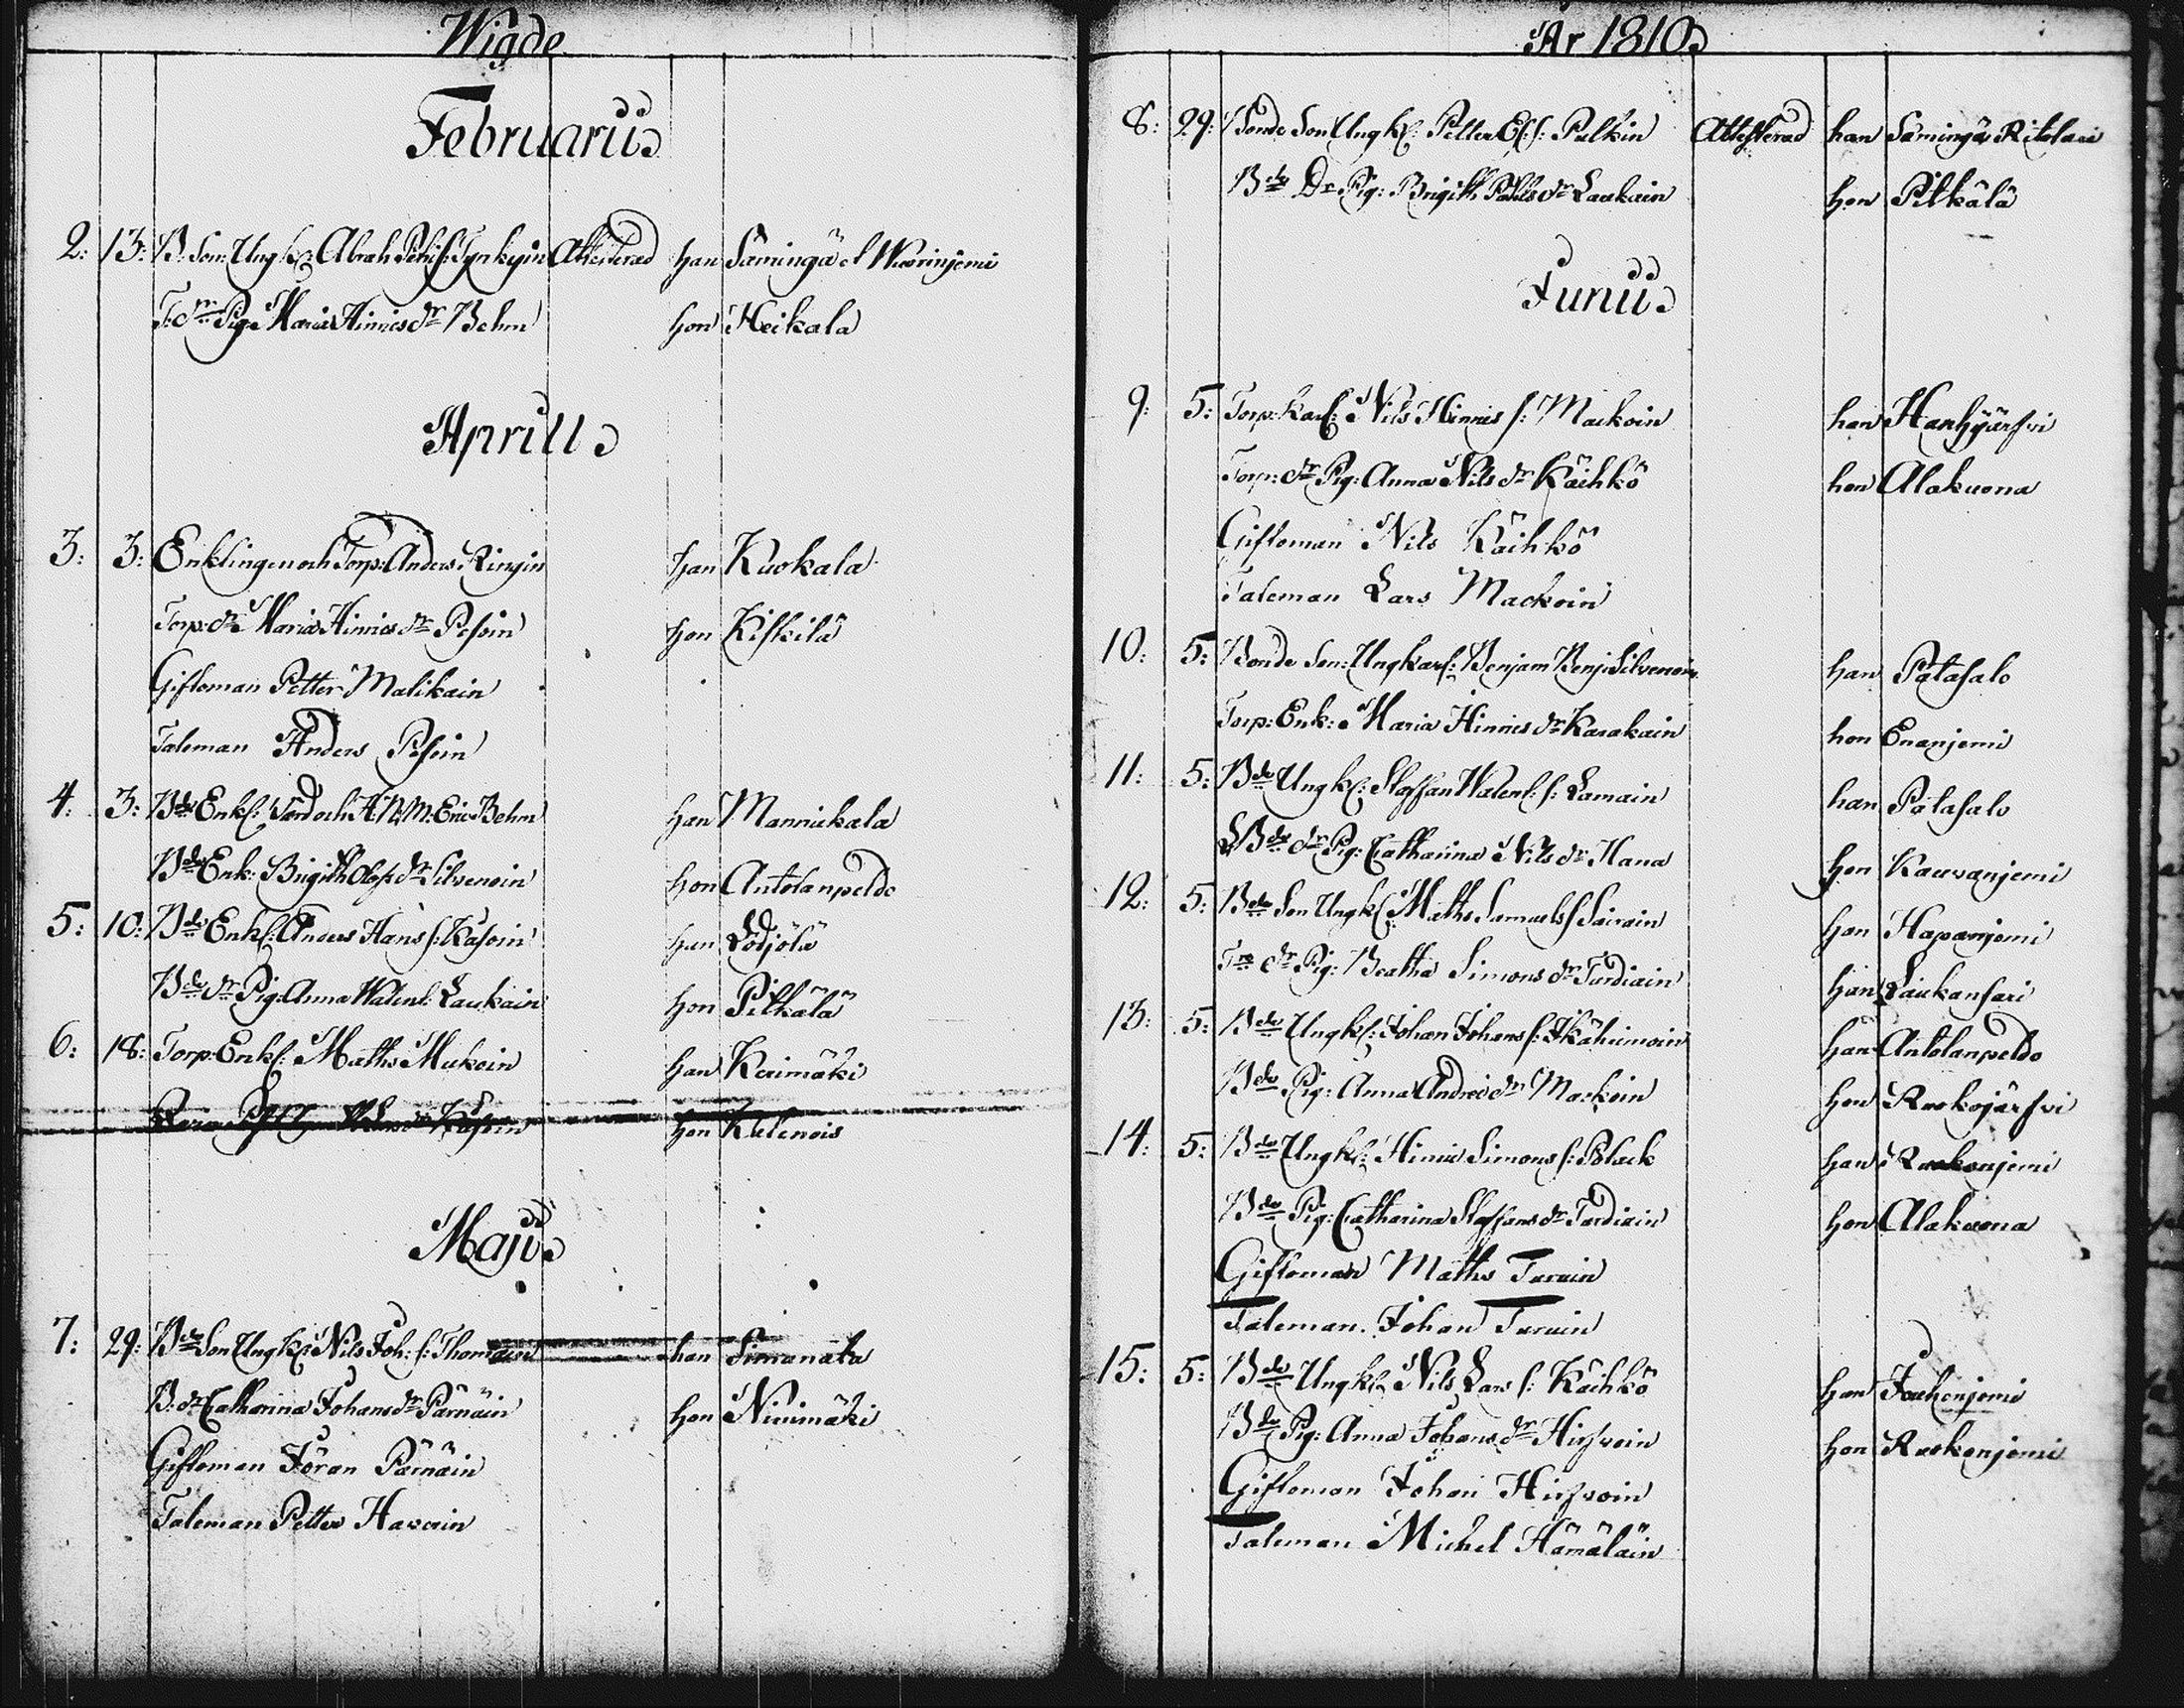 Wigde
Februarii
2: 13: B. Son: Ungk: Abrah Petri s: Tynkyin Attesterad han Säminge
T: dr Pig. Maria Hinrics dr Behm hon Heikala
Aprill
3: 3: Enklingen och Torp: Anders Ringin han Kuokala
Torp: dr Maria Hinrics dr Pesoin hon Kiskilä
Giftoman Petter Malikain
Taleman Anders Pesoin
4: 3: Bde Enkl: Eric Behm han Mannikala
Bde Enk: Brigith Olofs dr Silvenoin hon Antolanpeldo
5: 10: Bde Enkl: Anders Hans s: Käsoin han Lödjölä
Bde dr Pig: Anna Walent: Laukain hon Pitkälä
6: 18: Torp: Enkl: Maths Mukoin han Kerimäki
dr Käsoin hon Kulenois
Maji
7: 29: Bde Son Ungk: Nils Joh: s: Thomain han Simanata
B: dr Catharina Johans dr Pärnäin hon Niinimäki
Giftoman Jöran Pärnäin
Taleman Petter Haverin
År 1810
8: 29: Bonde Son Ungk: Petter Es: s: Pulkin Attesterad han Säminge Ritolax
Bde Dr Pig: Brigith Påhls dr Laukain hon Pitkälä
Junii
9: 5: Torp: Karl: Nils Hinrics s: Mackoin han Hanhijärfvi
Torp: dr Pig: Anna Nils dr Käihkö hon Alakuona
Giftoman Nils Käihkö
Taleman Lars Mackoin
10: 5: Bonde Son: Ungkarl: Benjam Benj: Silvenoin han Patasalo
Torp: Enk: Maria Hinrics dr Karakain hon Enanjemi
11: 5: Bde Ungk: Staffan Walent: s: Lamain han Patasalo
Bde dr Pig: Catharina Nils dr Hana hon Kauvanjemi
12: 5: Bde Son Ungk: Maths Samuels s Sairain han Hapanjemi
Tre dr Pig: Beatha Simons dr Tardiain han Laukansari
13: 5: Bde Ungk: Johan Johans s: Ikäheimoin han Antolanpeldo
Bde Pig: Anna Andres dr Mackoin hon Ruokojärfvi
14: 5: Bde Ungk: Hinric Simons s: Polack han Ruokonjemi
Bde Pig: Catharina Staffans dr Tardiain hon Alakuona
Giftoman Maths Turuin
Taleman. Johan Turuin
15: 5: Bde Ungk: Nils Lars s: Käihkö han Jouhenjemi
Bde Pig: Anna Johans dr Hirfvoin hon Ruokonjemi
Giftoman Johan Hirfvoin
Taleman Michel Hämäläin